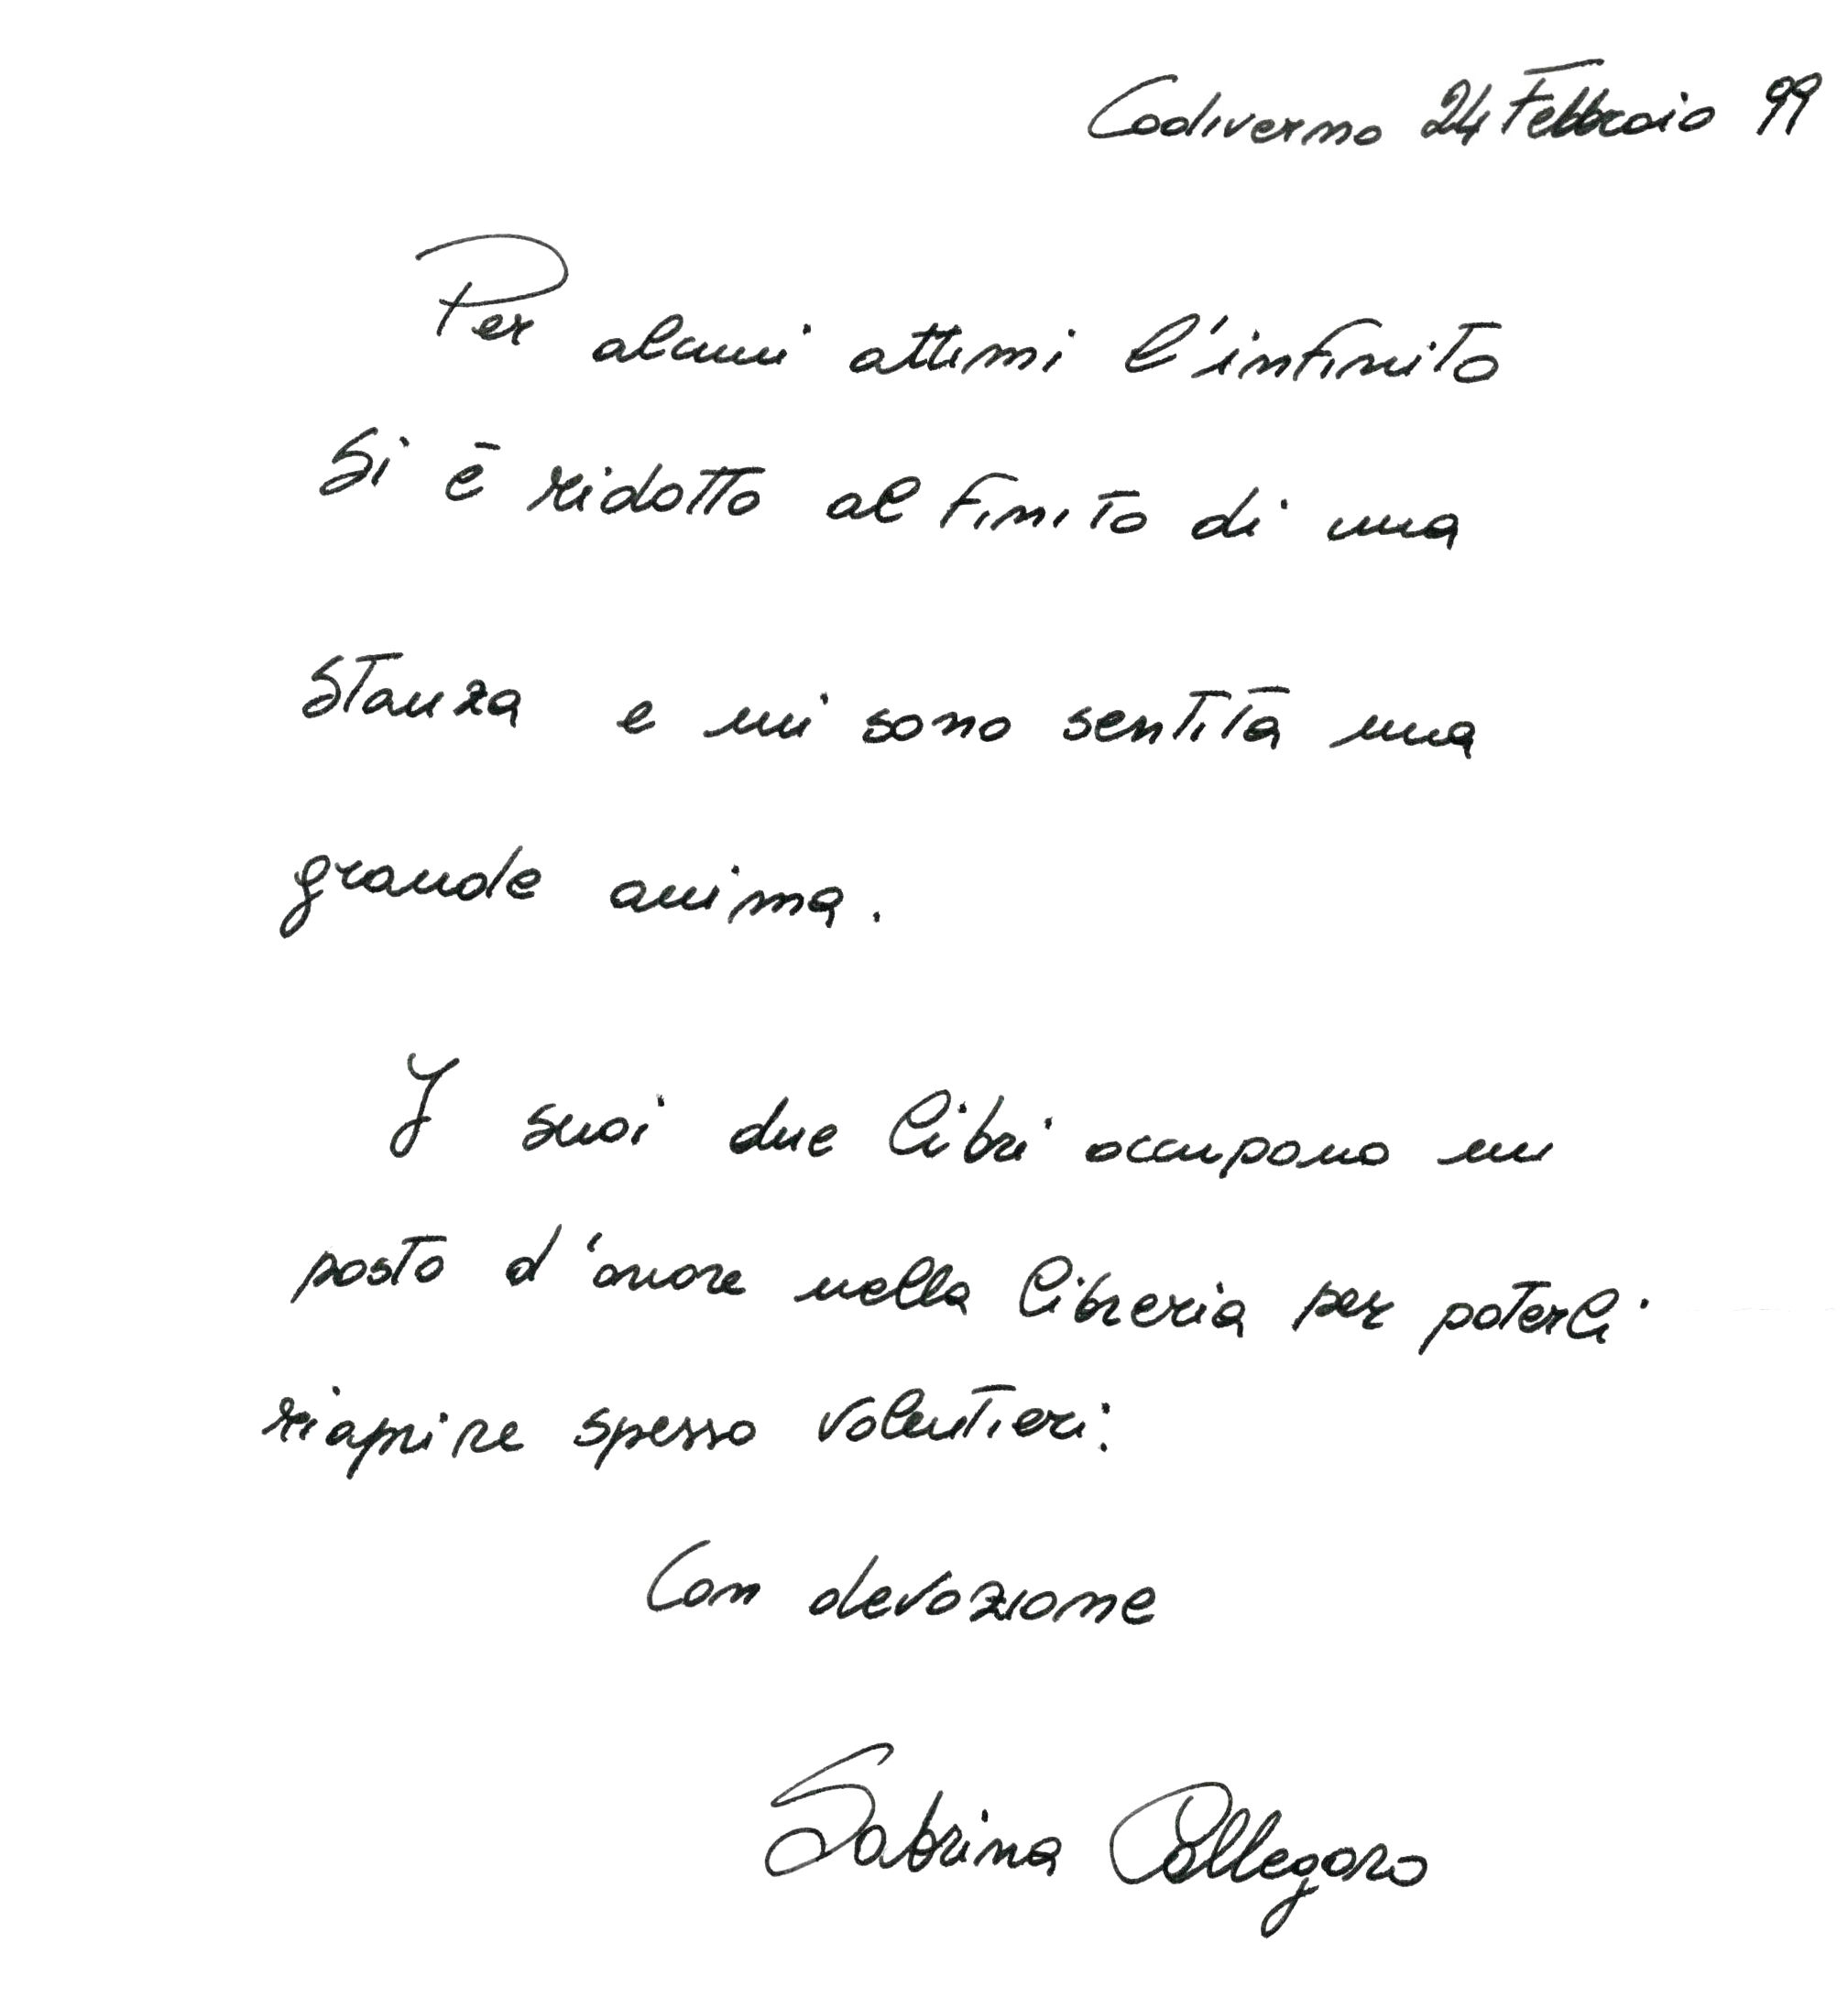 Codiverno 24 Febbraio 99
Per alcuni attimi l'infinito
si è ridotto al finito di una
stanza e mi sono sentita una
grande anima.
I suoi due libri occupano un
posto d'onore nella libreria per poterli
riaprire spesso volentieri:
Con devozione
Sabrina Callegaro